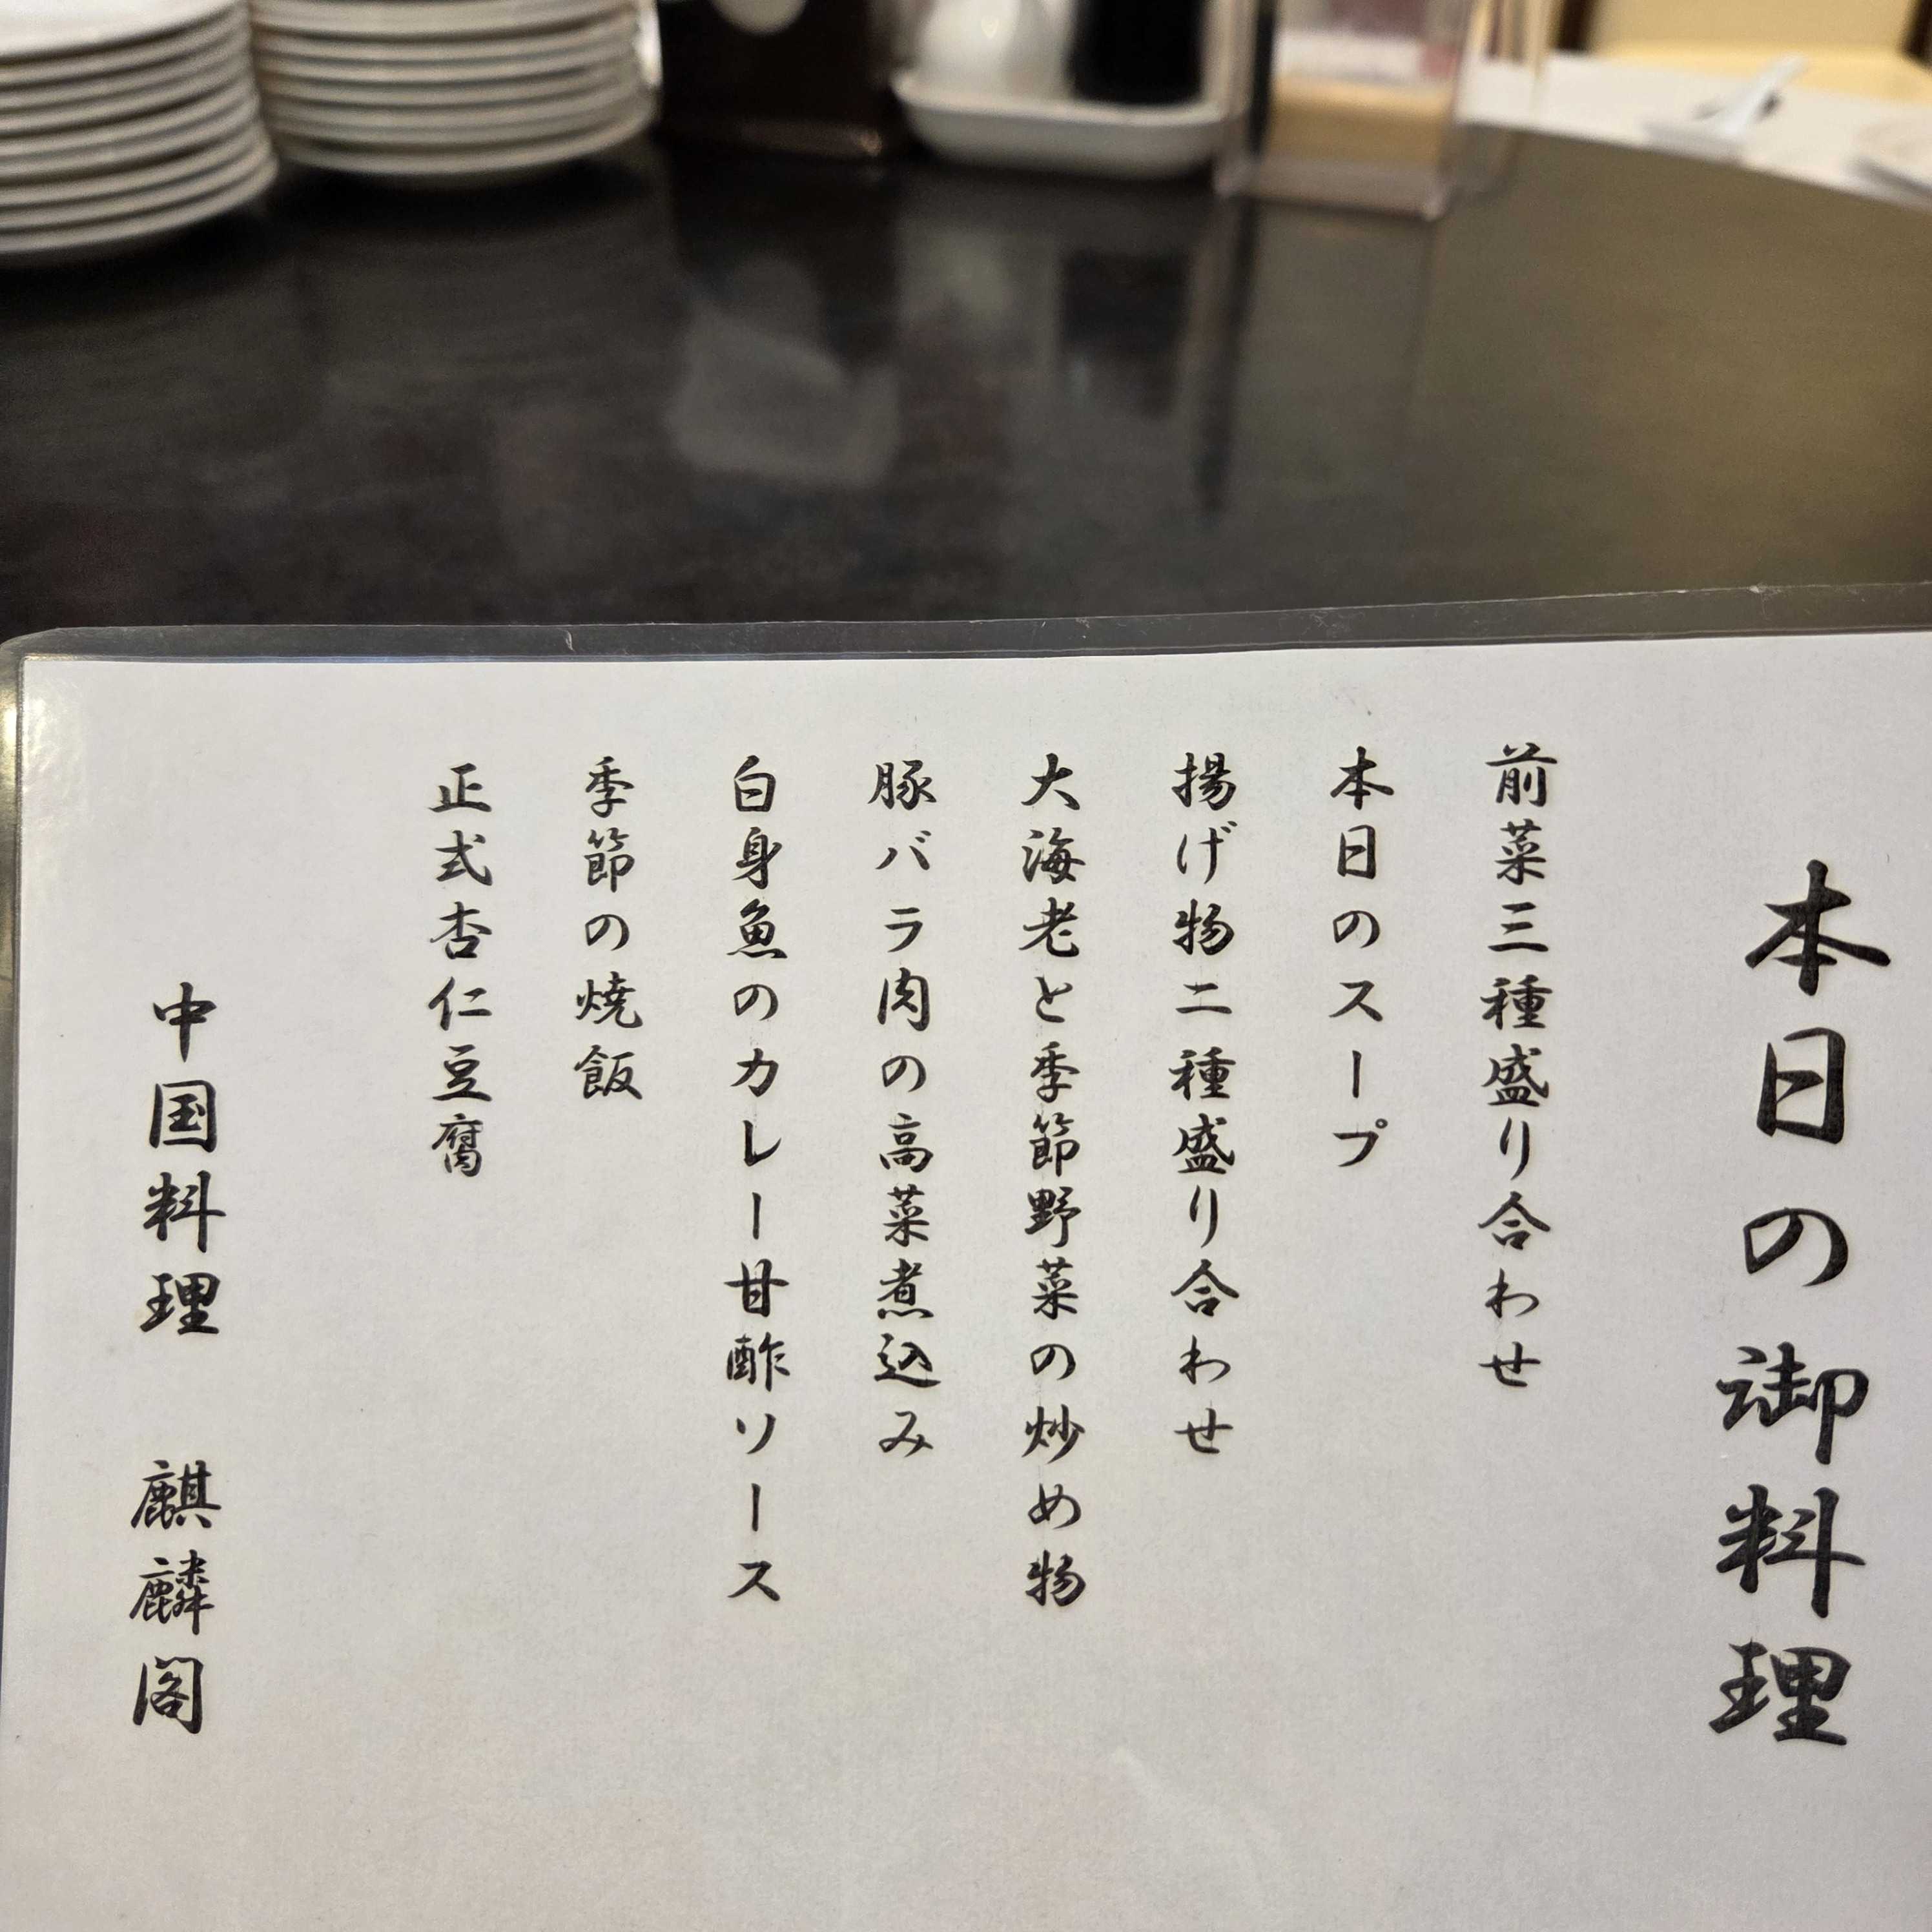 本日の御料理
前菜三種盛り合わせ
本日のスープ
揚げ物二種盛り合わせ
大海老と季節野菜の炒め物
豚バラ肉の高菜煮込み
白身魚のカレー甘酢ソース
季節の焼飯
正式杏仁豆腐
中国料理 麒麟閣